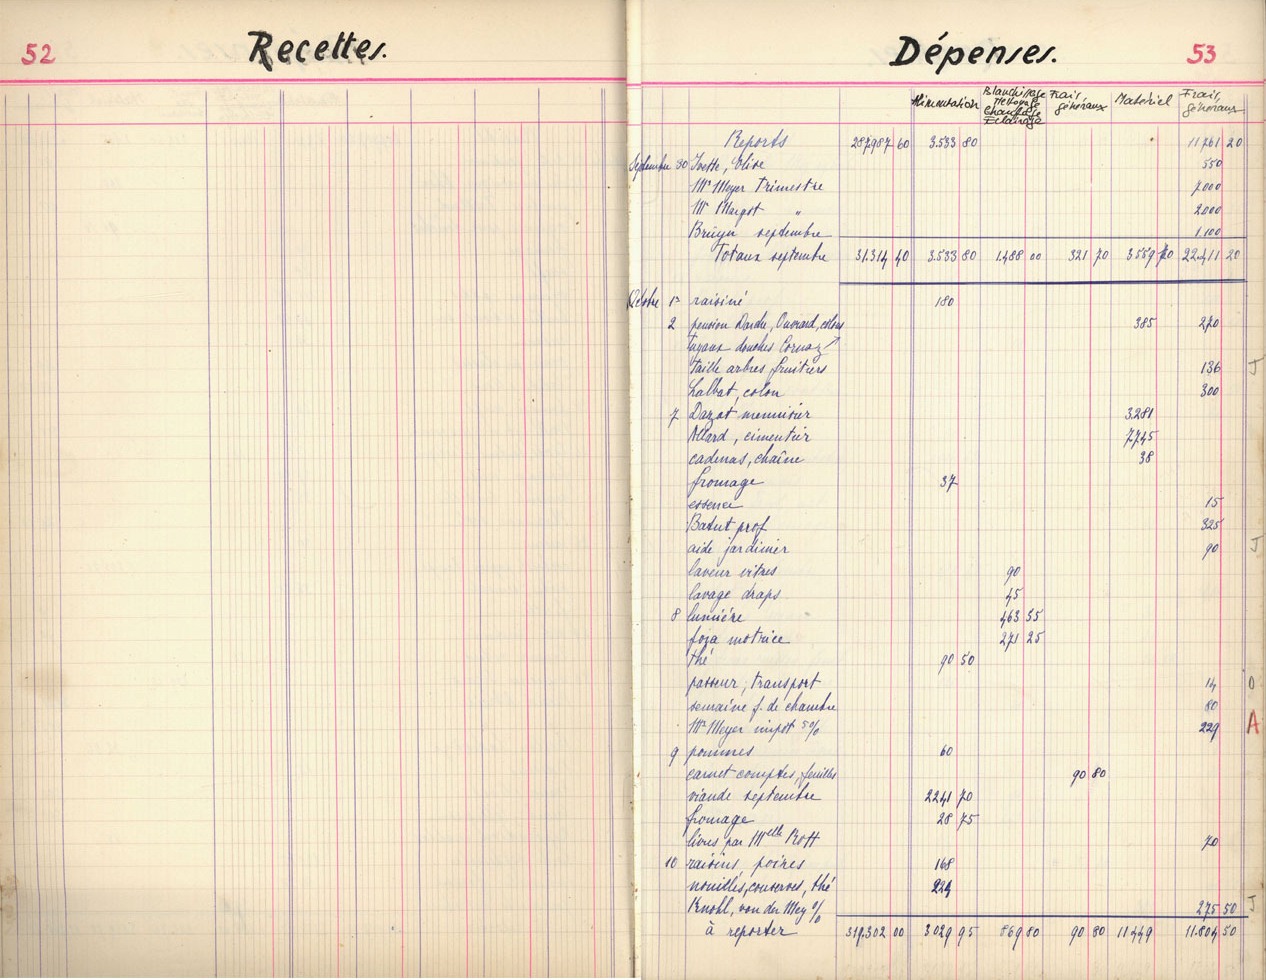 52 Recettes.
Dépenses. 53
Alimentation Blanchissage Nettoyage Chauffage Eclairage Frais généraux Matériel Frais généraux
Reports 287.987 60 3.533 80 11.761 20
Septembre 30 Yvette, Elise 550
Mr Meyer trimestre 7.000
Mr Margot " 2000
Bruyn septembre 1.100
Totaux septembre 31.314 40 3.533 80 1.488 00 321 70 3.559 70 22.411 20
Octobre 1er raisiné 180
2 pension Darde, Ouvrard, colons 385 270
tuyaux douches Cornaz
taille arbres fruitiers 136 J
Lalbat, colon 300
7 Dazat menuisier 3.281
Allard, cimentier 7.745
cadenas, chaîne 38
fromage 37
essence 15
Batut prof 325
aide jardinier 90 J
laveur vitres 90
lavage draps 45
8 lumière 463 55
force motrice 271 25
thé 90 50
passeur, transport 14 O
semaine f. de chambre 80
Mr Meyer impot 5% 229 A
9 pommes 60
carnet comptes, feuilles 90 80
viande septembre 2241 70
fromage 28 75
livres par Melle Rott 70
10 raisins, poires 168
nouilles, conserves, thé 224
Knohl, von der Mey % 275 50 J
à reporter 319.302 00 3029 95 869 80 90 80 11449 11.804 50